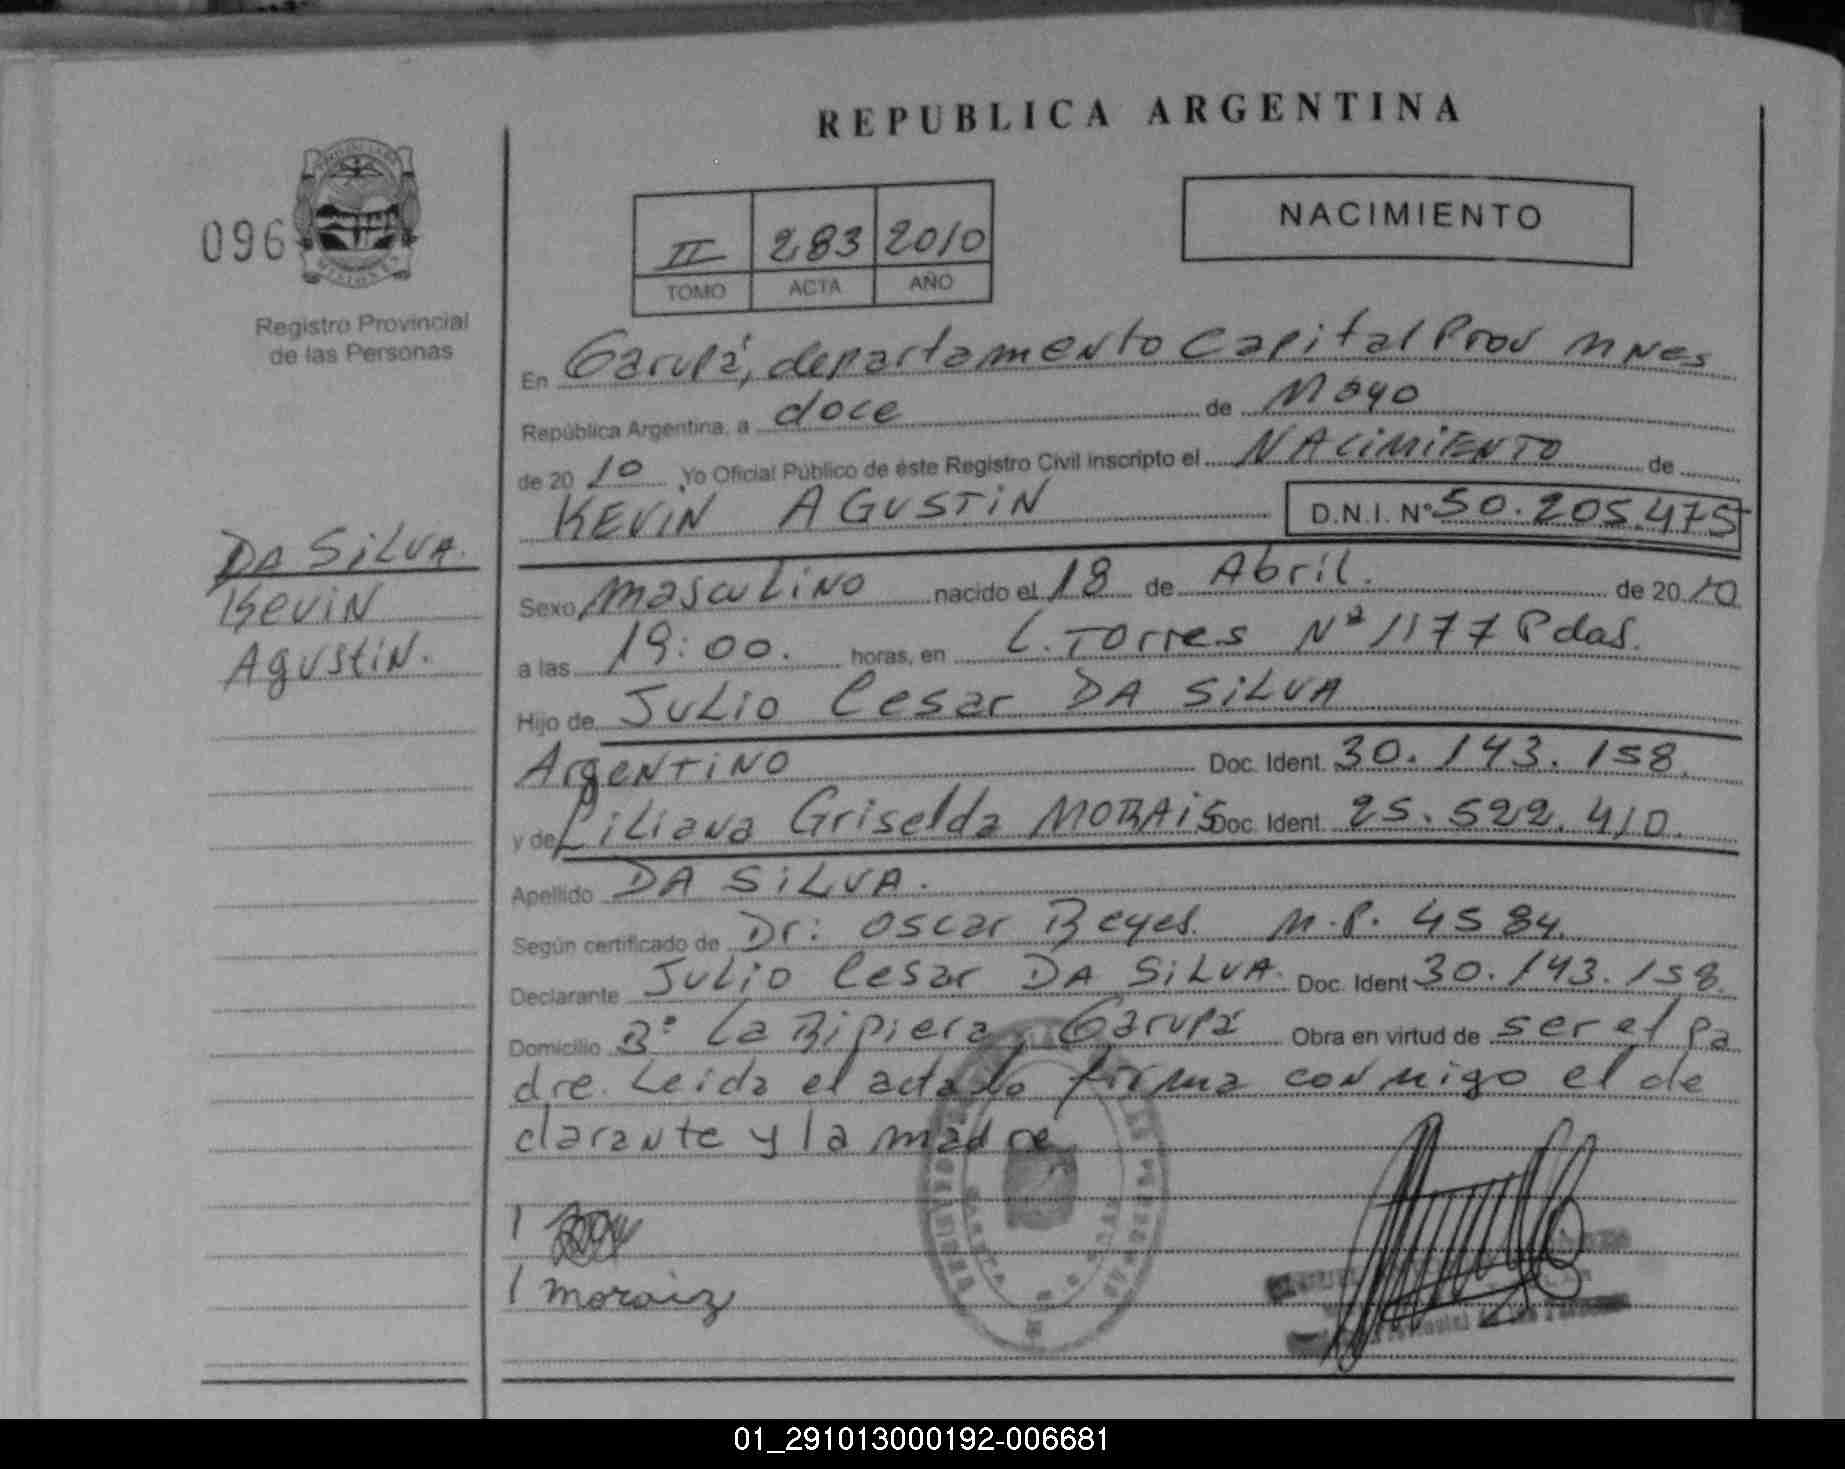 REPUBLICA ARGENTINA
NACIMIENTO
096
MISIONES
II 283 2010
TOMO ACTA AÑO
Registro Provincial
de las Personas
En Garupá, departamento Capital Prov Mnes
República Argentina, a doce de Mayo
de 20 10 Yo Oficial Público de éste Registro Civil inscripto el NACiMiENTO de
KEViN AGUSTiN D.N.I. N° 50.205.475
DA SiLVA.
Kevin
Agustin.
Sexo masculino nacido el 18 de Abril. de 20 10
a las 19:00. horas, en L. Torres Nª 1177 Pdas.
Hijo de Julio Cesar DA SiLVA
Argentino Doc. Ident. 30.143.158.
y de Liliana Griselda MORAiS Doc. Ident. 25.522.410.
Apellido DA SiLVA.
Según certificado de Dr: Oscar Reyes. M.P. 4584.
Declarante Julio Cesar DA SiLVA. Doc. Ident 30.143.158.
Domicilio B° La Ripiera, Garupá Obra en virtud de ser el pa
dre. Leida el acta la firma conmigo el de
clarante y la madre
moraiz
01_291013000192-006681